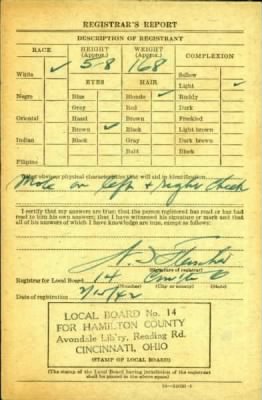 REGISTRAR'S REPORT
DESCRIPTION OF REGISTRANT
RACE HEIGHT (Approx.) WEIGHT (Approx.) COMPLEXION
White ✓ 5-8 168 Sallow
EYES HAIR Light ✓
Negro Blue Blonde ✓ Ruddy
Gray Red Dark
Oriental Hazel Brown Freckled
Brown ✓ Black Light brown
Indian Black Gray Dark brown
Bald Black
Filipino
Other obvious physical characteristics that will aid in identification
Mole on left & right cheek
I certify that my answers are true; that the person registered has read or has had
read to him his own answers; that I have witnessed his signature or mark and that
all of his answers of which I have knowledge are true, except as follows:
(Signature of registrar)
Registrar for Local Board 14
(Number) (City or county) (State)
Date of registration
LOCAL BOARD No. 14
FOR HAMILTON COUNTY
Avondale Lib'ry, Reading Rd.
CINCINNATI, OHIO
(STAMP OF LOCAL BOARD)
(The stamp of the Local Board having jurisdiction of the registrant
shall be placed in the above space)